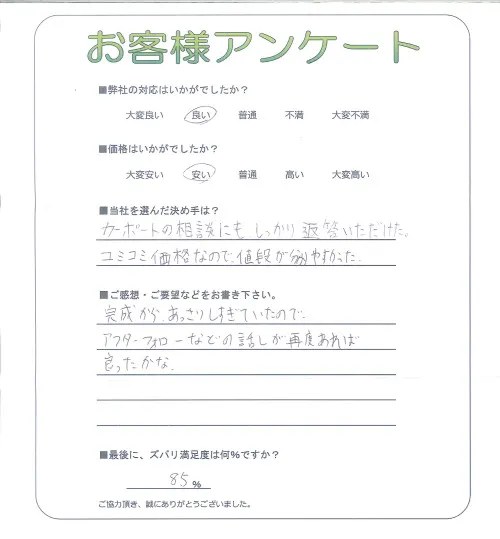 お客様アンケート
■弊社の対応はいかがでしたか？
大変良い 良い 普通 不満 大変不満
■価格はいかがでしたか？
大変安い 安い 普通 高い 大変高い
■当社を選んだ決め手は？
カーポートの相談にも しっかり返答いただけた。
コミコミ価格なので、値段が分りやすかった。
■ご感想・ご要望などをお書き下さい。
完成から、あっさりしすぎていたので、
アフターフォローなどの話しが再度あれば
良ったかな。
■最後に、ズバリ満足度は何％ですか？
85％
ご協力頂き、誠にありがとうございました。